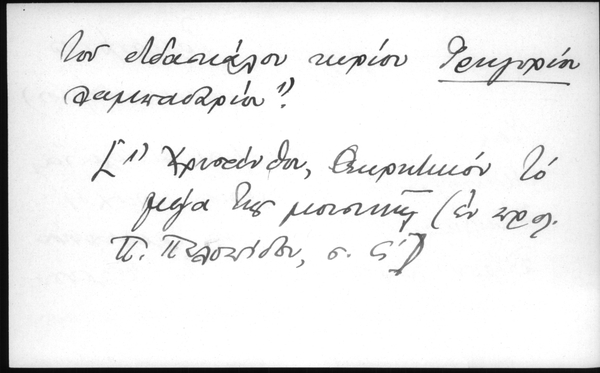 τοῦ διδασκάλου κυρίου Γρηγορίου
λαμπαδαρίου".
[1) Χρυσάνθου, Θεωρητικόν τό
μέγα τῆς μουσικῆς (ἐν προλ.
Π. Πελοπίδου, σ. ς')]